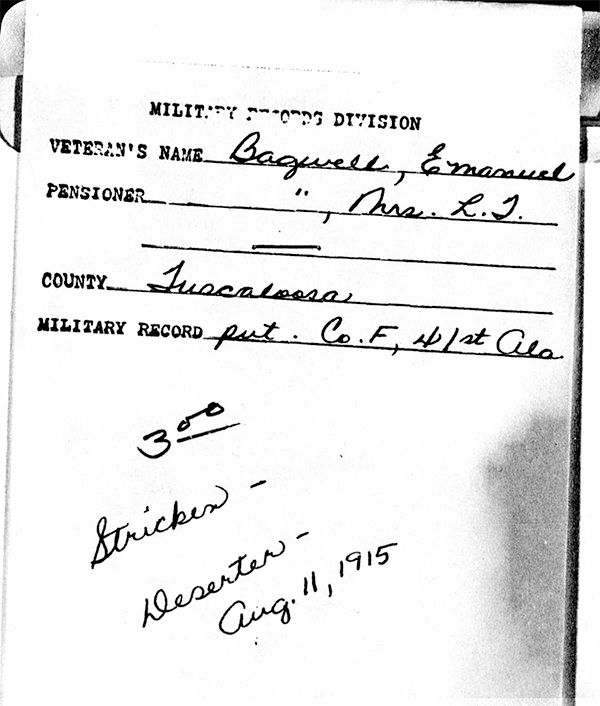 MILITARY RECORDS DIVISION
VETERAN'S NAME Bagwell, Emanuel
PENSIONER ", Mrs. L.T.
COUNTY Tuscaloosa
MILITARY RECORD pvt. Co. F, 41st Ala
3 00
Stricken -
Deserter -
Aug. 11, 1915